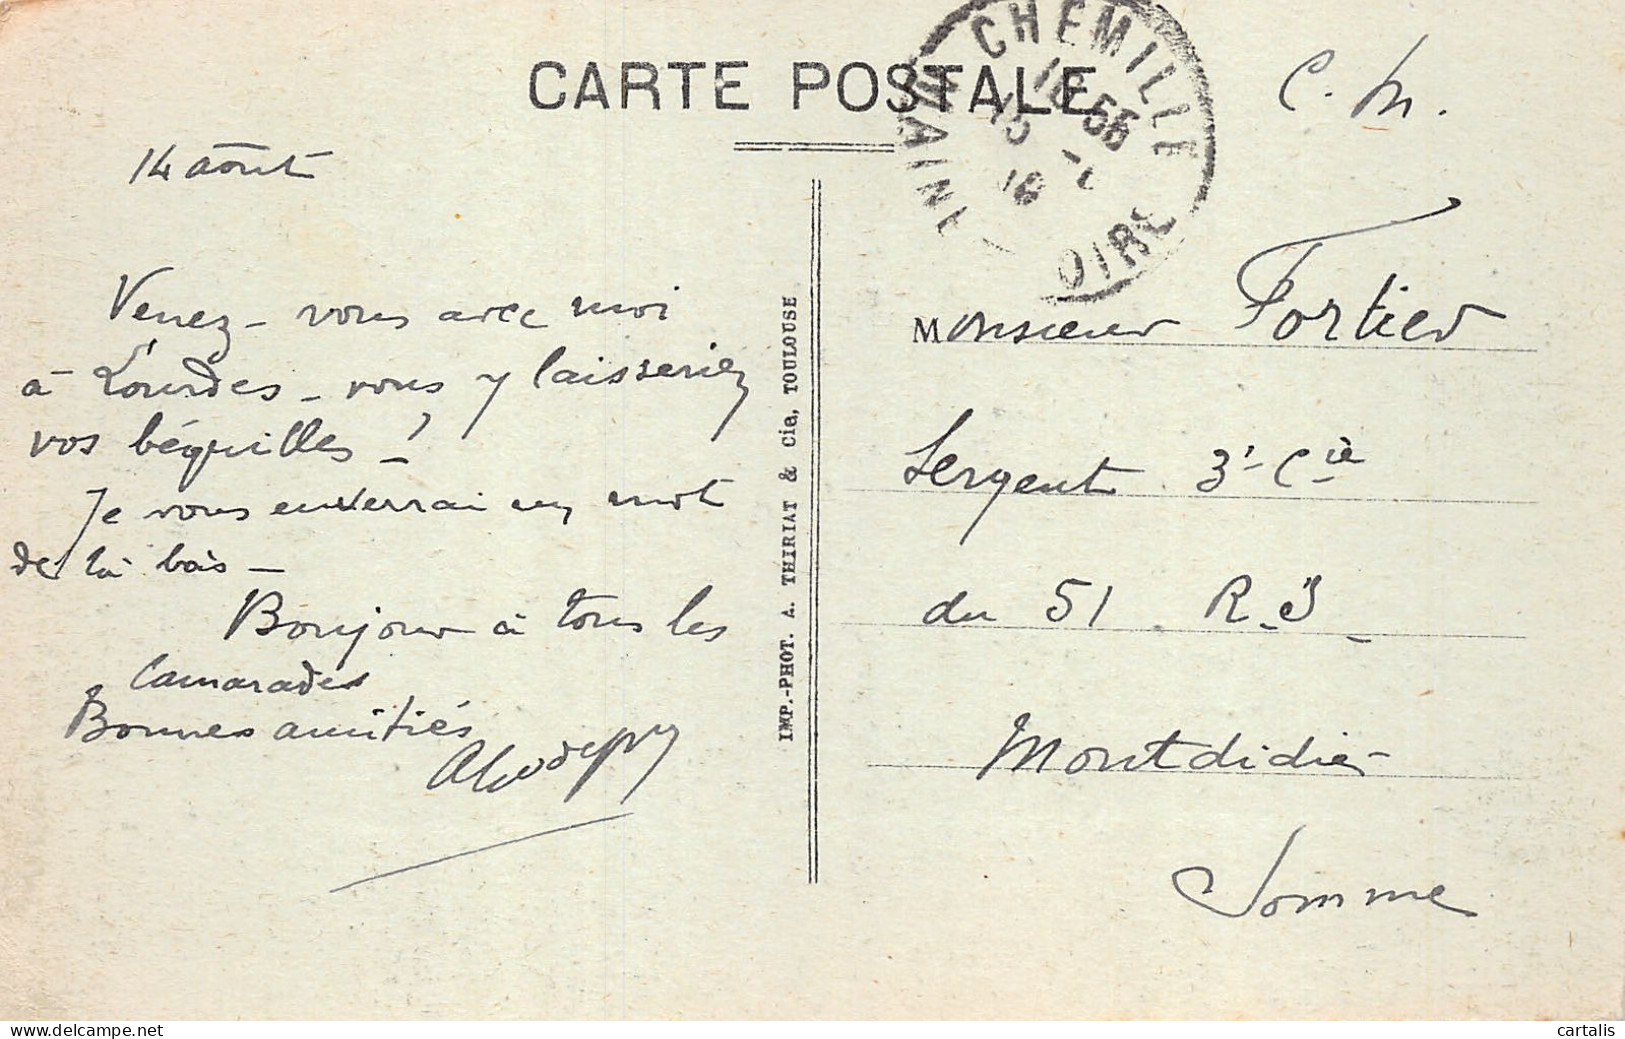 CARTE POSTALE
CHEMILLE
MAINE
LOIRE
C. M.
14 août
Venez-vous avec moi
à Lourdes - vous y laisseriez
vos béquilles - !
Je vous enverrai un mot
de là bas -
Bonjour à tous les
Camarades
Bonnes amitiés
IMP.-PHOT. A. THIRIAT & Cie, TOULOUSE
Monsieur Fortier
Sergent 3e Cie
du 51 R. I
Montdidier
Somme
delcampe.net
cartalis